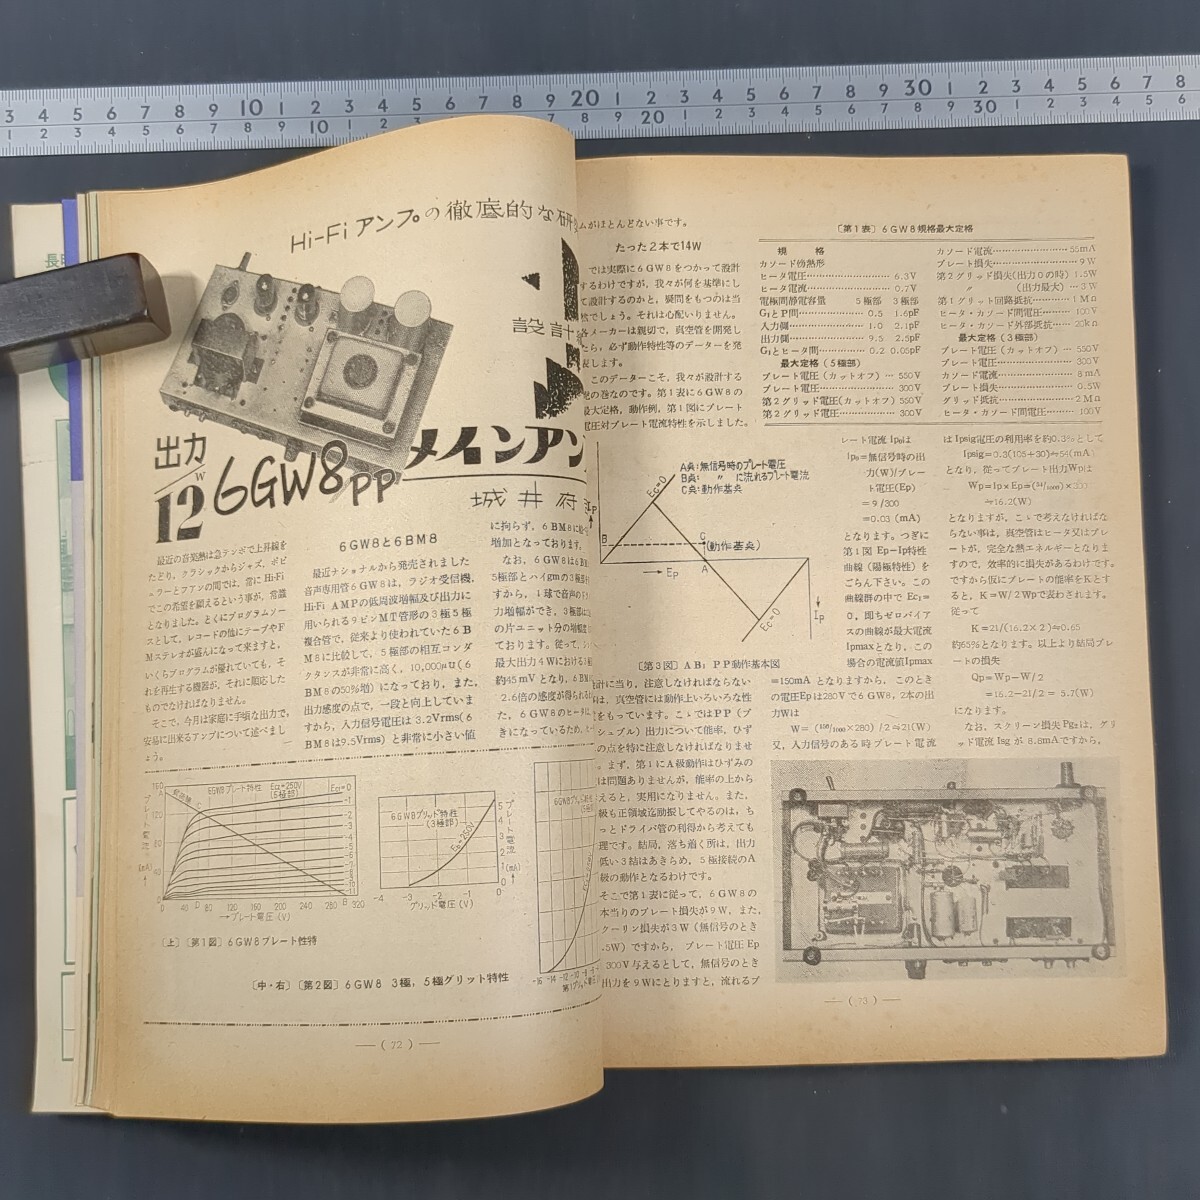 Hi-Fi アンプの徹底的な研
設計
出力
12W
6GW8PP
メインアン
城井府
最近の音楽熱は急テンポで上昇線を
たどり、クラシックからジャズ、ポピ
ュラーとファンの間では、常にHi-Fi
でこの希望を願えるという事が、常識
となりました。とくにプログラムソー
スとして、レコードの他にテープやF
Mステレオが盛んになって来ますと、
いくらプログラムが優れていても、そ
れを再生する機器が、それに順応した
ものでなければなりません。
そこで、今月は家庭に手頃な出力で、
安易に出来るアンプについて述べまし
ょう。
6GW8と6BM8
最近ナショナルから発売されました
音声専用管6GW8は、ラジオ受信機、
Hi-Fi AMPの低周波増幅及び出力に
用いられる9ピンMT管形の3極5極
複合管で、従来より使われていた6B
M8に比較して、5極部の相互コンダ
クタンスが非常に高く、10,000μ℧(6
BM8の50%増)になっており、また、
出力感度の点で、一段と向上していま
すから、入力信号電圧は3.2Vrms(6
BM8は9.5Vrms)と非常に小さい値
に拘らず、6BM8に
増加となっております。
なお、6GW8は6BM
5極部とハイgmの3極部
すから、1球で音声の
力増幅ができ、3極部は
の片ユニット分の増幅
ております。従って、
最大出力4Wにおける
約45mVとなり、6BM
2.6倍の感度が得られ
た、6GW8のヒータは
きになっているため、
6GW8プレート特性 EC2=250V
(5極部)
EC1=0
プレート電流 (mA)
160
120
80
40
0 40 80 120 160 200 240 280 320
→プレート電圧(V)
6GW8グリッド特性
(3極部)
Eb=250V
プレート電流 (mA)
5
4
3
2
1
0
-4 -3 -2 -1 0
グリッド電圧(V)
-16 -14 -12 -10 -8 -6
〔上〕〔第1図〕6GW8プレート性特
〔中・右〕〔第2図〕6GW8 3極,5極グリット特性
—(72)—
ムがほとんどない事です。
たった2本で14W
では実際に6GW8をつかって設計
するわけですが、我々が何を基準にし
て設計するのかと、疑問をもつのは当
然でしょう。それは心配いりません。
各メーカーは親切で、真空管を開発し
たら、必ず動作特性等のデーターを発
表します。
このデーターこそ、我々が設計する
の巻なのです。第1表に6GW8の
最大定格,動作例,第1図にプレート
電圧対プレート電流特性を示しました。
〔第1表〕6GW8規格最大定格
規 格
カソード傍熱形
ヒータ電圧……6.3V
ヒータ電流……0.7V
電極間静電容量 5極部 3極部
G₁とP間……0.5 1.6pF
入力側……1.0 2.1pF
出力側……9.5 2.5pF
G₁とヒータ間……0.2 0.05pF
最大定格(5極部)
プレート電圧(カットオフ)…550V
プレート電圧……300V
第2グリッド電圧(カットオフ)550V
第2グリッド電圧……300V
カソード電流……55mA
プレート損失……9W
第2グリッド損失(出力0の時)1.5W
〃 (出力最大)…3W
第1グリット回路抵抗……1MΩ
ヒータ・カソード間電圧……100V
ヒータ・カソード外部抵抗…20kΩ
最大定格(3極部)
プレート電圧(カットオフ)…550V
プレート電圧……300V
カソード電流……8mA
プレート損失……0.5W
グリッド抵抗……2MΩ
ヒータ・カソード間電圧……100V
A点:無信号時のプレート電圧
B点: 〃 に流れるプレート電流
C点:動作基点
Ec=0
B
C
(動作基点)
→Ep
A
Ec=0
↓Ip
〔第3図〕AB₁ PP動作基本図
計に当り、注意しなければならない
は、真空管には動作上いろいろな性
をもっています。こゝではPP(プ
シュプル)出力について能率、ひず
の点を特に注意しなければなりませ
。まず、第1にA級動作はひずみの
は問題ありませんが、能率の上から
えると、実用になりません。また、
級も正領域迄励振してやるのは、ち
っとドライバ管の利得から考えても
理です。結局、落ち着く所は、出力
低い3結はあきらめ、5極接続のA
級の動作となるわけです。
そこで第1表に従って、6GW8の
本当りのプレート損失が9W、また、
クーリン損失が3W(無信号のとき
.5W)ですから、プレート電圧Ep
300V与えるとして、無信号のとき
出力を9Wにとりますと、流れるプ
レート電流Ip₀は
Ip₀=無信号時の出
力(W)/プレー
ト電圧(Ep)
=9/300
=0.03(mA)
となります。つぎに
第1図 Ep-Ip特性
曲線(陽極特性)を
ごらん下さい。この
曲線群の中でEc₁=
0,即ちゼロバイア
スの曲線が最大電流
Ipmaxとなり、この
場合の電流値Ipmax
=150mAとなりますから、このとき
の電圧Epは280Vで6GW8、2本の出
力Wは
W=(150/1000×280)/2≒21(W)
又、入力信号のある時プレート電流
はIpsig電圧の利用率を約0.3%として
Ipsig=0.3(105+30)≒54(mA)
となり、従ってプレート出力Wpは
Wp=Ip×Ep=(54/1000)×300
≒16.2(W)
となりますが、こゝで考えなければな
らない事は、真空管はヒータ又はプレ
ートが、完全な熱エネルギーとなりま
すので、効率的に損失があるわけです。
ですから仮にプレートの能率をKとす
ると、K=W/2Wpで表わされます。
従って
K=21/(16.2×2)≒0.65
約65%となります。以上より結局プレ
ートの損失
Qp=Wp-W/2
=16.2-21/2=5.7(W)
になります。
なお、スクリーン損失Pg₂は、グリ
ッド電流Isgが8.8mAですから、
—(73)—